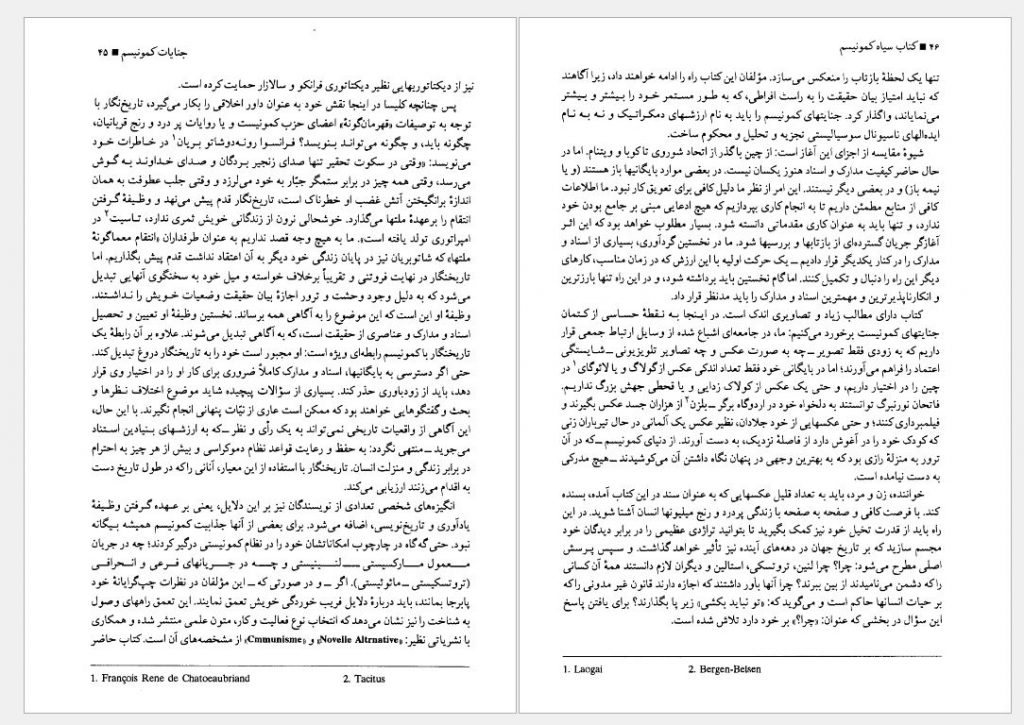 جنایات کمونیسم ■ ۴۵
نیز از دیکتاتوریهایی نظیر دیکتاتوری فرانکو و سالازار حمایت کرده است.
پس چنانچه کلیسا در اینجا نقش خود به عنوان داور اخلاقی را بکار می‌گیرد، تاریخ‌نگار با
توجه به توصیفات «قهرمان‌گونهٔ» اعضای حزب کمونیست و یا روایات پر درد و رنج قربانیان،
چگونه باید، و چگونه می‌تواند بـنویسد؟ فرانسوا رونه‌دوشاتو بریان۱ در خاطرات خود
می‌نویسد: «وقتی در سکوت تحقیر تنها صدای زنجیر بردگان و صدای خداوند به گوش
می‌رسد، وقتی همه چیز در برابر ستمگر جبّار به خود می‌لرزد و وقتی جلب عطوفت به همان
اندازهٔ برانگیختن آتش غضب او خطرناک است، تاریخ‌نگار قدم پیش می‌نهد و وظیفهٔ گرفتن
انتقام را برعهدهٔ ملتها می‌گذارد. خوشحالی نرون از زندگانی خویش ثمری ندارد، تاسیت۲ در
امپراتوری تولد یافته است». ما به هیچ وجه قصد نداریم به عنوان طرفداران «انتقام معماگونهٔ
ملتها» که شاتوبریان نیز در پایان زندگی خود دیگر به آن اعتقاد نداشت قدم پیش بگذاریم. اما
تاریخنگار در نهایت فروتنی و تقریباً برخلاف خواسته و میل خود به سخنگوی آنهایی تبدیل
می‌شود که به دلیل وجود وحشت و ترور اجازهٔ بیان حقیقت وضعیات خویش را نداشتند.
وظیفهٔ او این است که این موضوع را به آگاهی همه برساند. نخستین وظیفهٔ او تعیین و تحصیل
اسناد و مدارک و عناصری از حقیقت است، که به آگاهی تبدیل می‌شوند. علاوه بر آن رابطهٔ یک
تاریخنگار با کمونیسم رابطه‌ای ویژه است: او مجبور است خود را به تاریخنگار دروغ تبدیل کند.
حتی اگر دسترسی به بایگانیها، اسناد و مدارک کاملاً ضروری برای کار او را در اختیار وی قرار
دهد، باید از زودباوری حذر کند. بسیاری از سؤالات پیچیده شاید موضوع اختلاف نظرها و
بحث و گفتگوهایی خواهند بود که ممکن است عاری از نیّات پنهانی انجام نگیرند. با این حال،
این آگاهی از واقعیات تاریخی نمی‌تواند به یک رأی و نظر ــ که به ارزشهای بنیادین استناد
می‌جوید ــ منتهی نگردد: به حفظ و رعایت قواعد نظام دموکراسی و بیش از هر چیز به احترام
در برابر زندگی و منزلت انسان. تاریخنگار با استفاده از این معیار، آنانی را که در طول تاریخ دست
به اقدام می‌زنند ارزیابی می‌کند.
انگیزه‌های شخصی تعدادی از نویسندگان نیز بر این دلایل، یعنی بر عهده گرفتن وظیفهٔ
یادآوری و تاریخ‌نویسی، اضافه می‌شود. برای بعضی از آنها جذابیت کمونیسم همیشه بیگانه
نبود. حتی گه گاه در چارچوب امکاناتشان خود را در نظام کمونیستی درگیر کردند؛ چه در جریان
معمول مارکسیستی ــ لنینیستی و چه در جریانهای فرعی و انحرافی
(تروتسکیستی ــ مائوئیستی). اگر ــ و در صورتی که ــ این مؤلفان در نظرات چپ‌گرایانهٔ خود
پابرجا بمانند، باید دربارهٔ دلایل فریب خوردگی خویش تعمق نمایند. این تعمق راههای وصول
به شناخت را نیز نشان می‌دهد که انتخاب نوع فعالیت و کار، متون علمی منتشر شده و همکاری
با نشریاتی نظیر: «Novelle Altrnative» و «Cmmunisme» از مشخصه‌های آن است. کتاب حاضر
1. François Rene de Chatoeaubriand 2. Tacitus
۴۶ ■ کتاب سیاه کمونیسم
تنها یک لحظهٔ بازتاب را منعکس می‌سازد. مؤلفان این کتاب راه را ادامه خواهند داد، زیرا آگاهند
که نباید امتیاز بیان حقیقت را به راست افراطی، که به طور مستمر خود را بیشتر و بیشتر
می‌نمایاند، واگذار کرد. جنایتهای کمونیسم را باید به نام ارزشهای دمکراتیک و نه به نام
ایده‌الهای ناسیونال سوسیالیستی تجزیه و تحلیل و محکوم ساخت.
شیوهٔ مقایسه از اجزای این آغاز است: از چین با گذر از اتحاد شوروی تا کوبا و ویتنام. اما در
حال حاضر کیفیت مدارک و اسناد هنوز یکسان نیست. در بعضی موارد بایگانیها باز هستند (و یا
نیمه باز) و در بعضی دیگر نیستند. این امر از نظر ما دلیل کافی برای تعویق کار نبود. ما اطلاعات
کافی از منابع مطمئن داریم تا به انجام کاری بپردازیم که هیچ ادعایی مبنی بر جامع بودن خود
ندارد، و تنها باید به عنوان کاری مقدماتی دانسته شود. بسیار مطلوب خواهد بود که این اثر
آغازگر جریان گسترده‌ای از بازتابها و بررسیها شود. ما در نخستین گردآوری، بسیاری از اسناد و
مدارک را در کنار یکدیگر قرار دادیم ــ یک حرکت اولیه با این ارزش که در زمان مناسب، کارهای
دیگر این راه را دنبال و تکمیل کنند. اما گام نخستین باید برداشته شود، و در این راه تنها بارزترین
و انکارناپذیرترین و مهمترین اسناد و مدارک را باید مدنظر قرار داد.
کتاب دارای مطالب زیاد و تصاویری اندک است. در اینجا به نقطهٔ حساسی از کتمان
جنایتهای کمونیست برخورد می‌کنیم: ما، در جامعه‌ای اشباع شده از وسایل ارتباط جمعی قرار
داریم که به زودی فقط تصویر ــ چه به صورت عکس و چه تصاویر تلویزیونی ــ شایستگی
اعتماد را فراهم می‌آورند؛ اما در بایگانی خود فقط تعداد اندکی عکس از گولاگ و یا لائوگای۱ در
چین را در اختیار داریم، و حتی یک عکس از کولاک زدایی و یا قحطی جهش بزرگ نداریم.
فاتحان نورنبرگ توانستند به دلخواه خود در اردوگاه برگر ــ بلزن۲ از هزاران جسد عکس بگیرند و
فیلمبرداری کنند؛ و حتی عکسهایی از خود جلادان، نظیر عکس یک آلمانی در حال تیرباران زنی
که کودک خود را در آغوش دارد از فاصلهٔ نزدیک، به دست آورند. از دنیای کمونیسم ــ که در آن
ترور به منزلهٔ رازی بود که به بهترین وجهی در پنهان نگاه داشتن آن می‌کوشیدند ــ هیچ مدرکی
به دست نیامده است.
خواننده، زن و مرد، باید به تعداد قلیل عکسهایی که به عنوان سند در این کتاب آمده، بسنده
کند. با فرصت کافی و صفحه به صفحه با زندگی پردرد و رنج میلیونها انسان آشنا شوید. در این
راه باید از قدرت تخیل خود نیز کمک بگیرید تا بتوانید تراژدی عظیمی را در برابر دیدگان خود
مجسم سازید که بر تاریخ جهان در دهه‌های آینده نیز تأثیر خواهد گذاشت. و سپس پرسش
اصلی مطرح می‌شود: چرا؟ چرا لنین، تروتسکی، استالین و دیگران لازم دانستند همهٔ آن کسانی
را که دشمن می‌نامیدند از بین ببرند؟ چرا آنها باور داشتند که اجازه دارند قانون غیر مدونی را که
بر حیات انسانها حاکم است و می‌گوید که: «تو نباید بکشی» زیر پا بگذارند؟ برای یافتن پاسخ
این سؤال در بخشی که عنوان: «چرا؟» بر خود دارد تلاش شده است.
1. Laogai 2. Bergen-Belsen